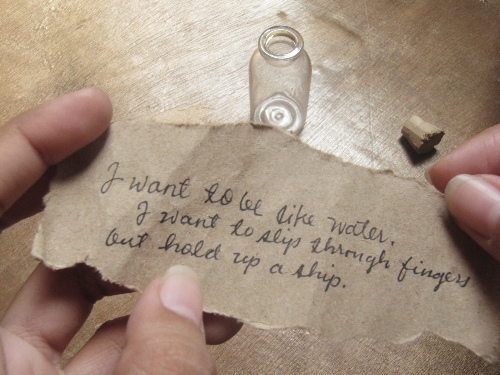 I want to be like water.
I want to slip through fingers
but hold up a ship.